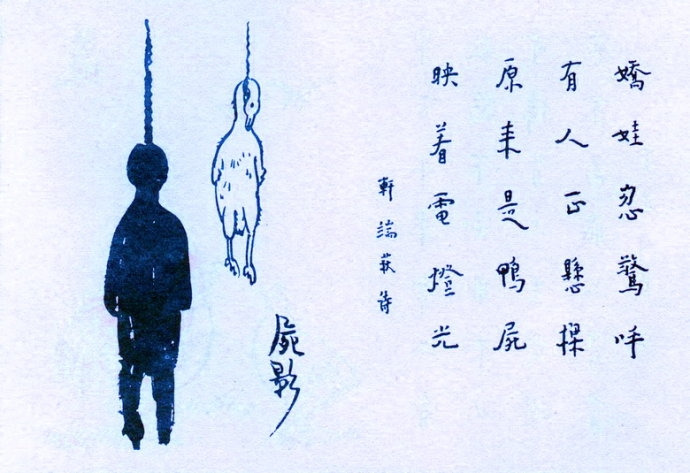 嬌娃忽驚呼
有人正懸樑
原来是鴨屍
映着電燈光
軒端荻诗
屍影